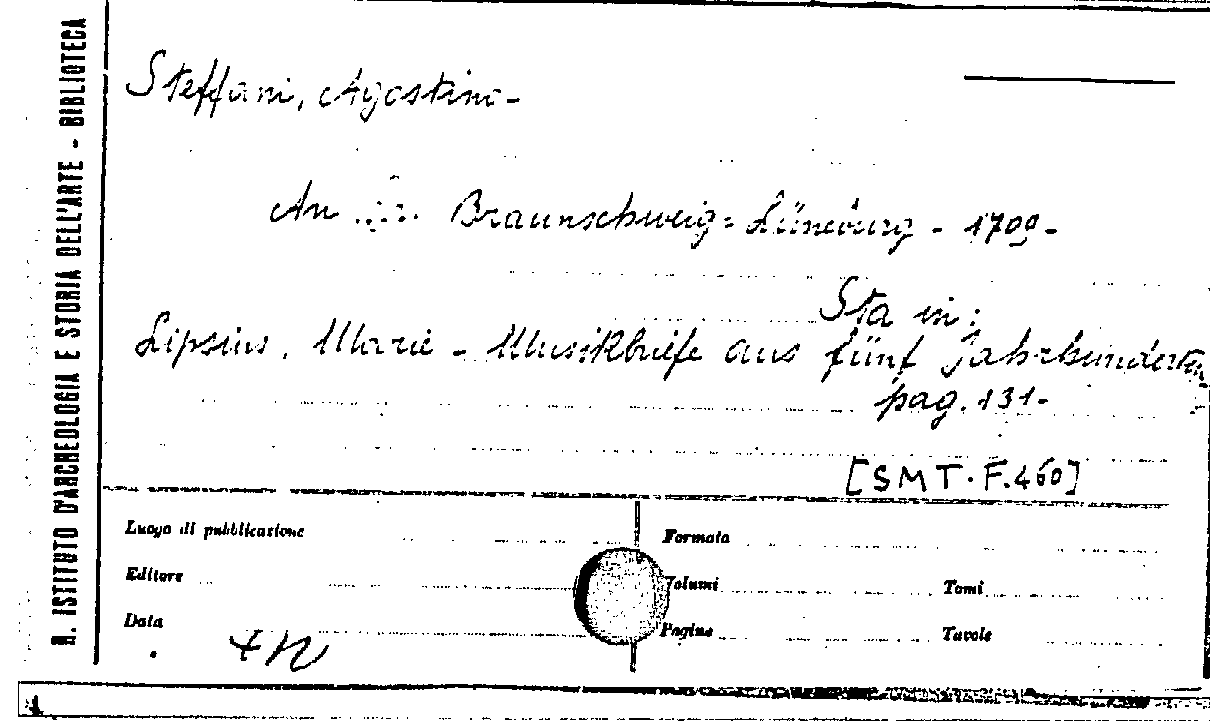 R. ISTITUTO D'ARCHEOLOGIA E STORIA DELL'ARTE - BIBLIOTECA
Steffani, Agostino -
An ... Braunschweig = Lüneburg - 1709 -
Sta in:
Lipsius, Marie - Musikbriefe aus fünf Jahrhunderten
pag. 131 -
[SMT. F. 460]
Luogo di pubblicazione
Formato
Editore
Volumi
Tomi
Data
Pagine
Tavole